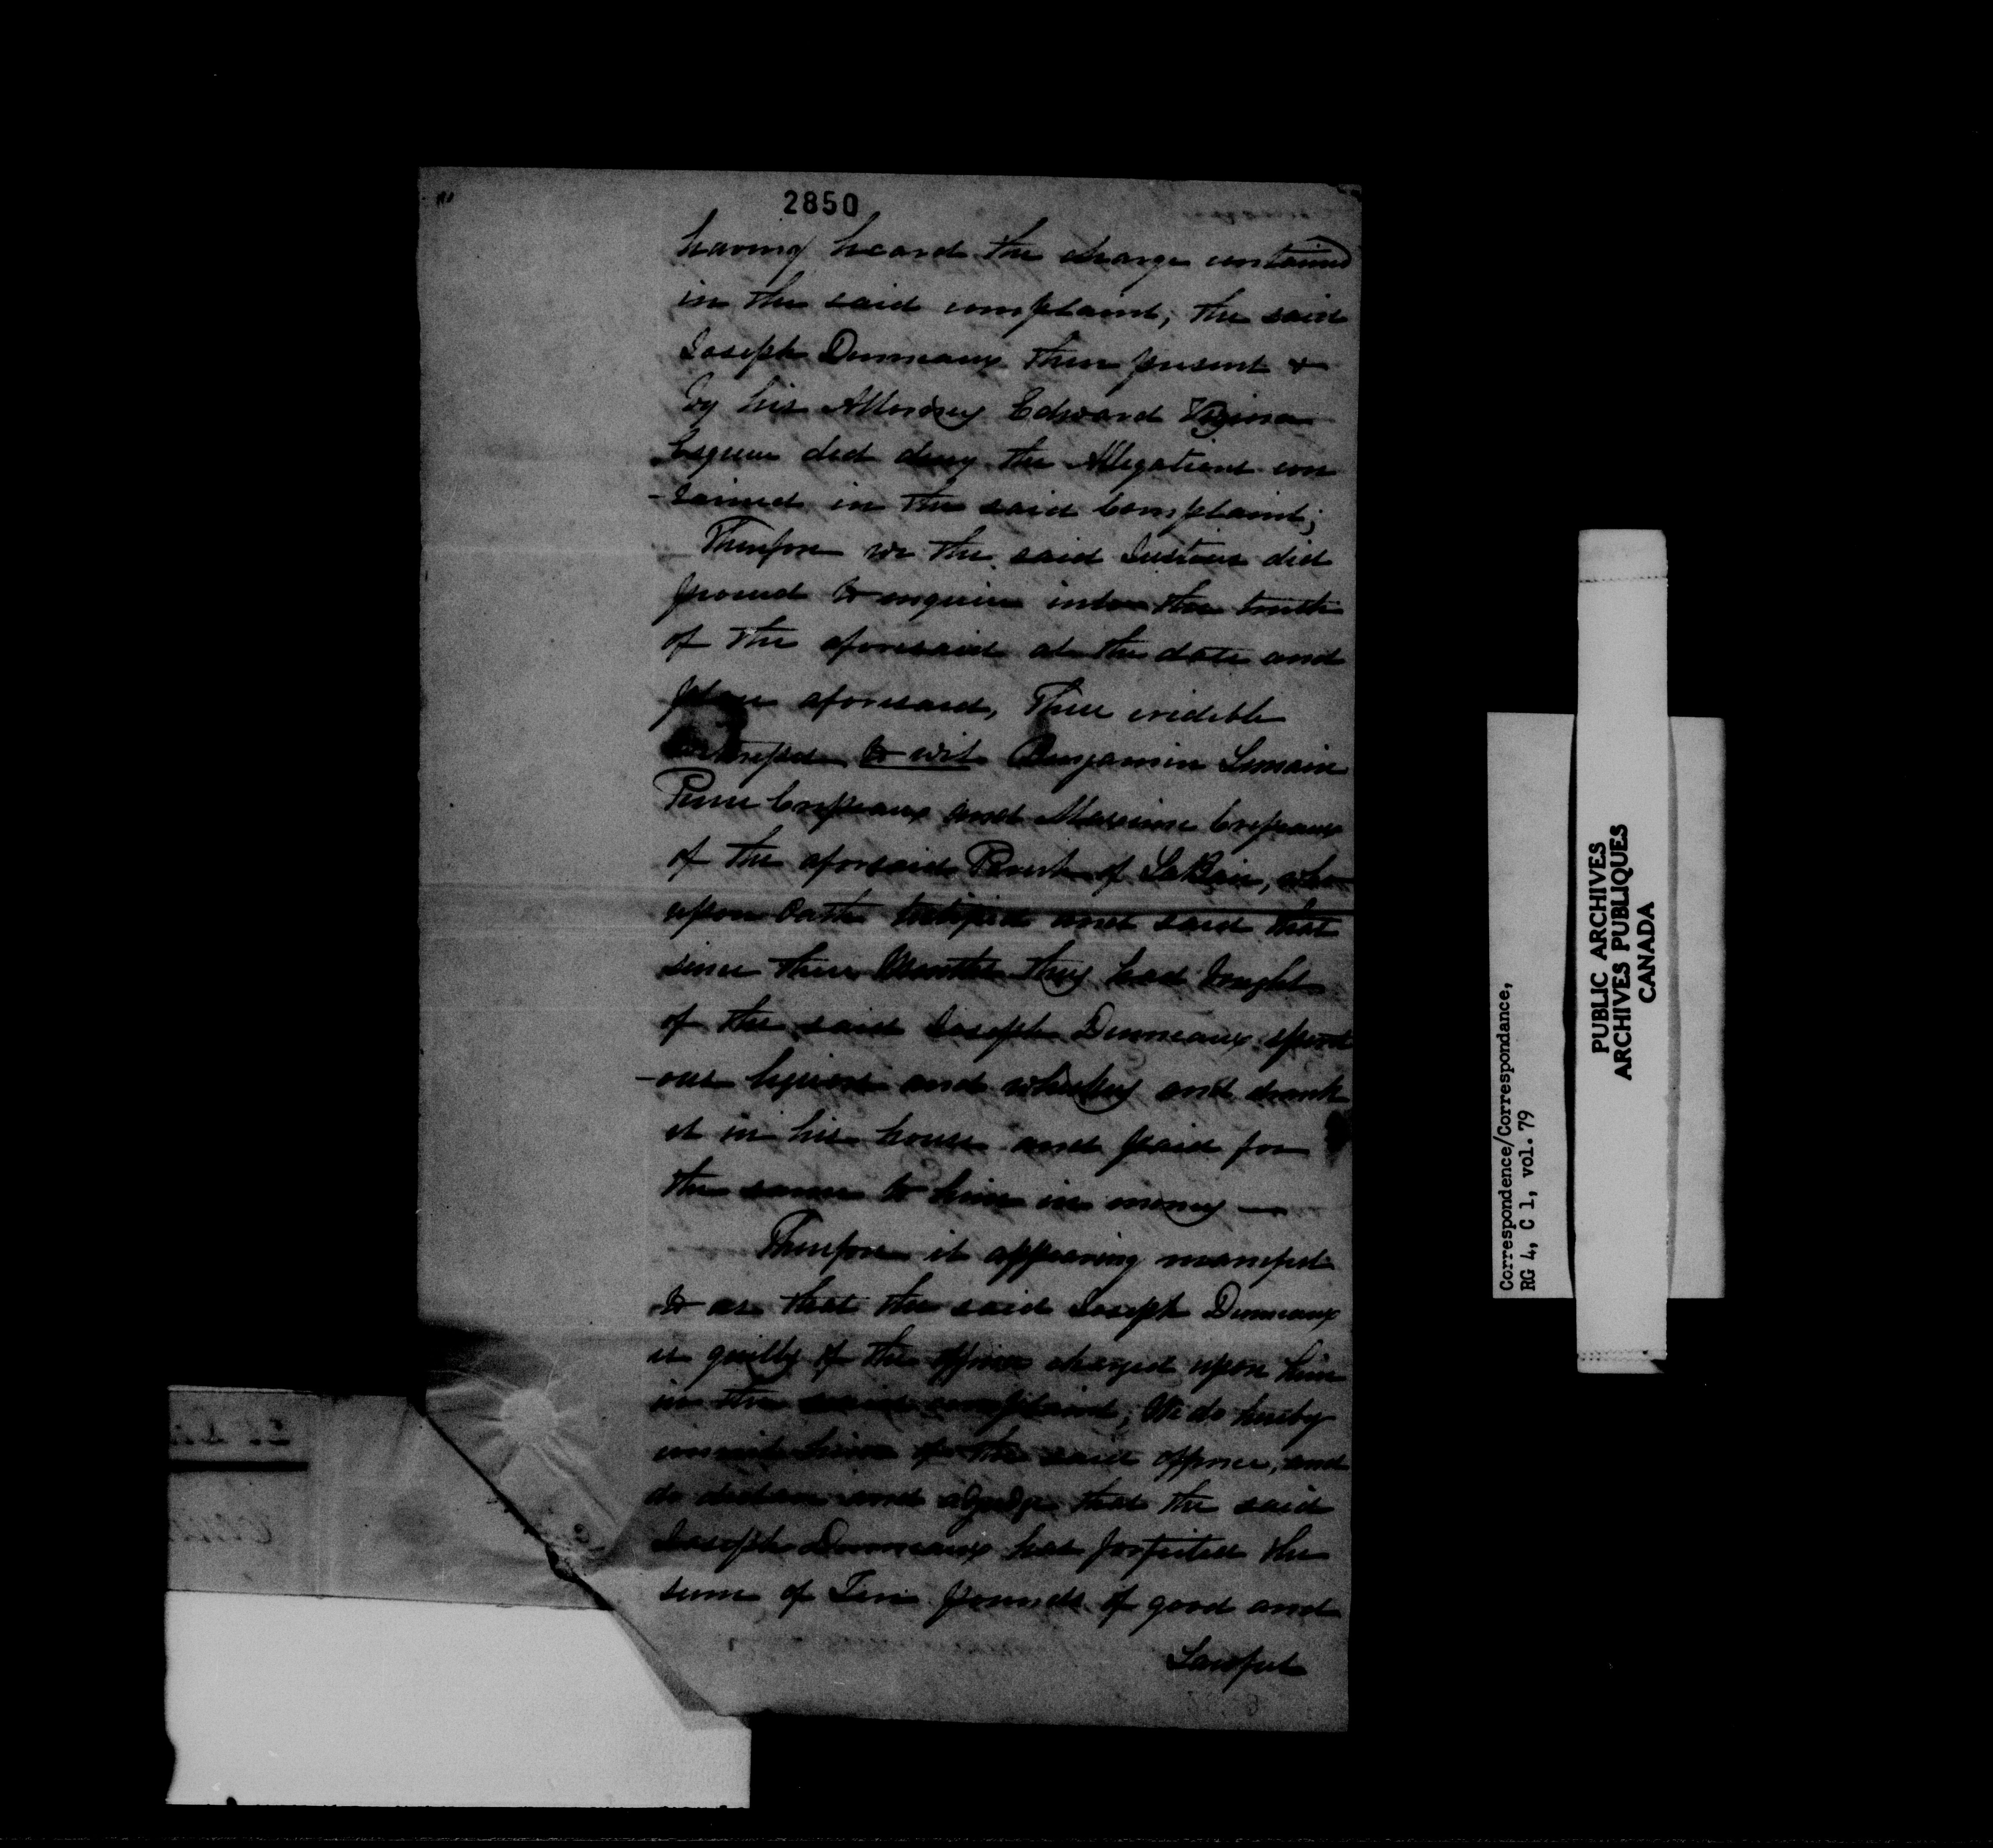 2850
having heard the charge contained
in the said complaint, the said
Joseph Dumeaux then present &
by his Attorney Edward
Esquire did deny the Allegations con
-tained in the said Complaint;
Therefore we the said Justices did
proceed to enquire into the truth
of the aforesaid at the date and
place aforesaid, Three credible
witnesses to wit Benjamin Lemaire
Pierre Crepeaux and Maxime Crepeaux
of the aforsaid Parish of LaBaie, who
upon Oath testified and said that
since three Months they had bought
of the said Joseph Dumeaux spirit
-ous liquors and whiskey and drank
it in his house and paid for
the same to him in money —
Therefore it appearing manifest
to us that the said Joseph Dumeaux
is guilty of the offence charged upon him
in the said complaint, We do hereby
convict him of the said offence, and
do declare and adjudge that the said
Joseph Dumeaux has forfeited the
sum of Ten pounds of good and
Lawful
Correspondence/Correspondance,
RG 4, C 1, vol. 79
PUBLIC ARCHIVES
ARCHIVES PUBLIQUES
CANADA